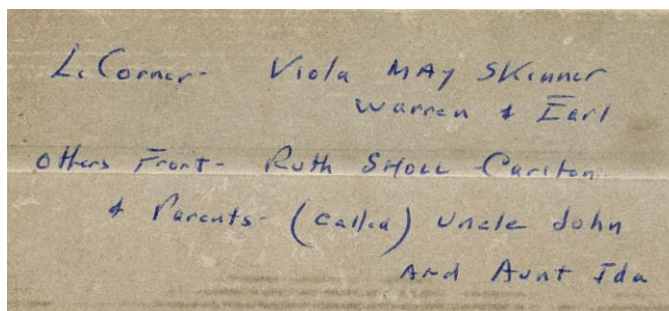 L. Corner- Viola MAY Skinner
Warren & Earl
Others Front- Ruth SHOLL Carlton
& Parents- (Called) Uncle John
And Aunt Ida